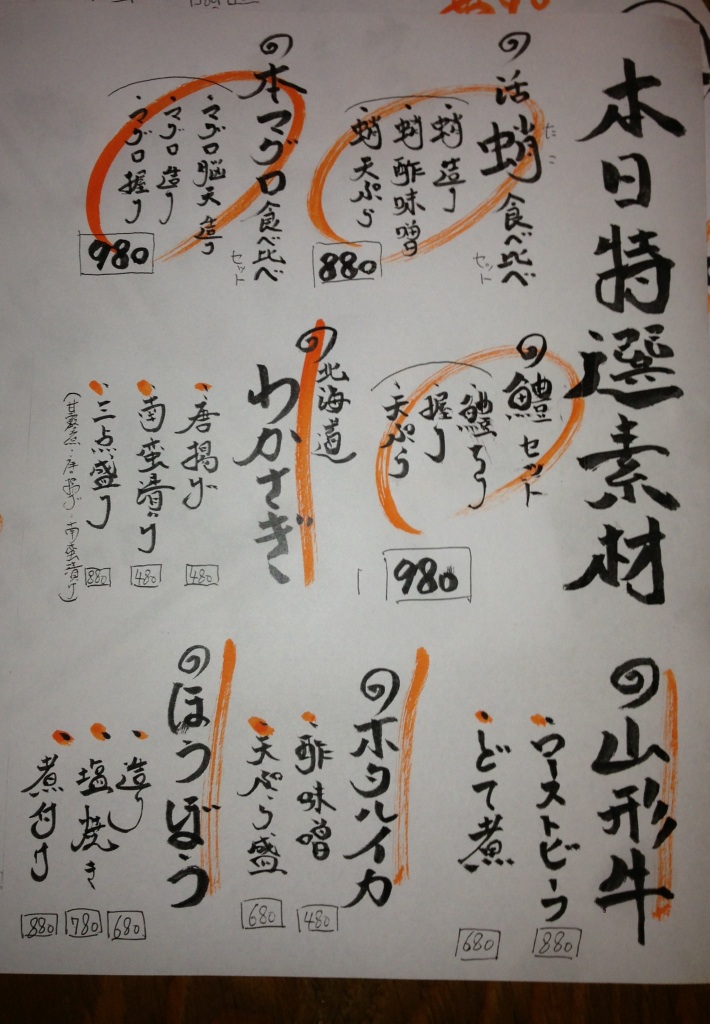 本日特選素材
活蛸食べ比べセット
たこ
蛸造り
蛸酢味噌
蛸天ぷら
880
本マグロ食べ比べセット
マグロ脳天造り
マグロ造り
マグロ握り
980
鱧セット
鱧ちり
握り
天ぷら
980
北海道
わかさぎ
唐揚げ
480
南蛮漬け
480
三点盛り
880
山形牛
ローストビーフ
880
どて煮
680
ホタルイカ
酢味噌
480
天ぷら盛
680
ほうぼう
造り
680
塩焼き
780
煮付け
880